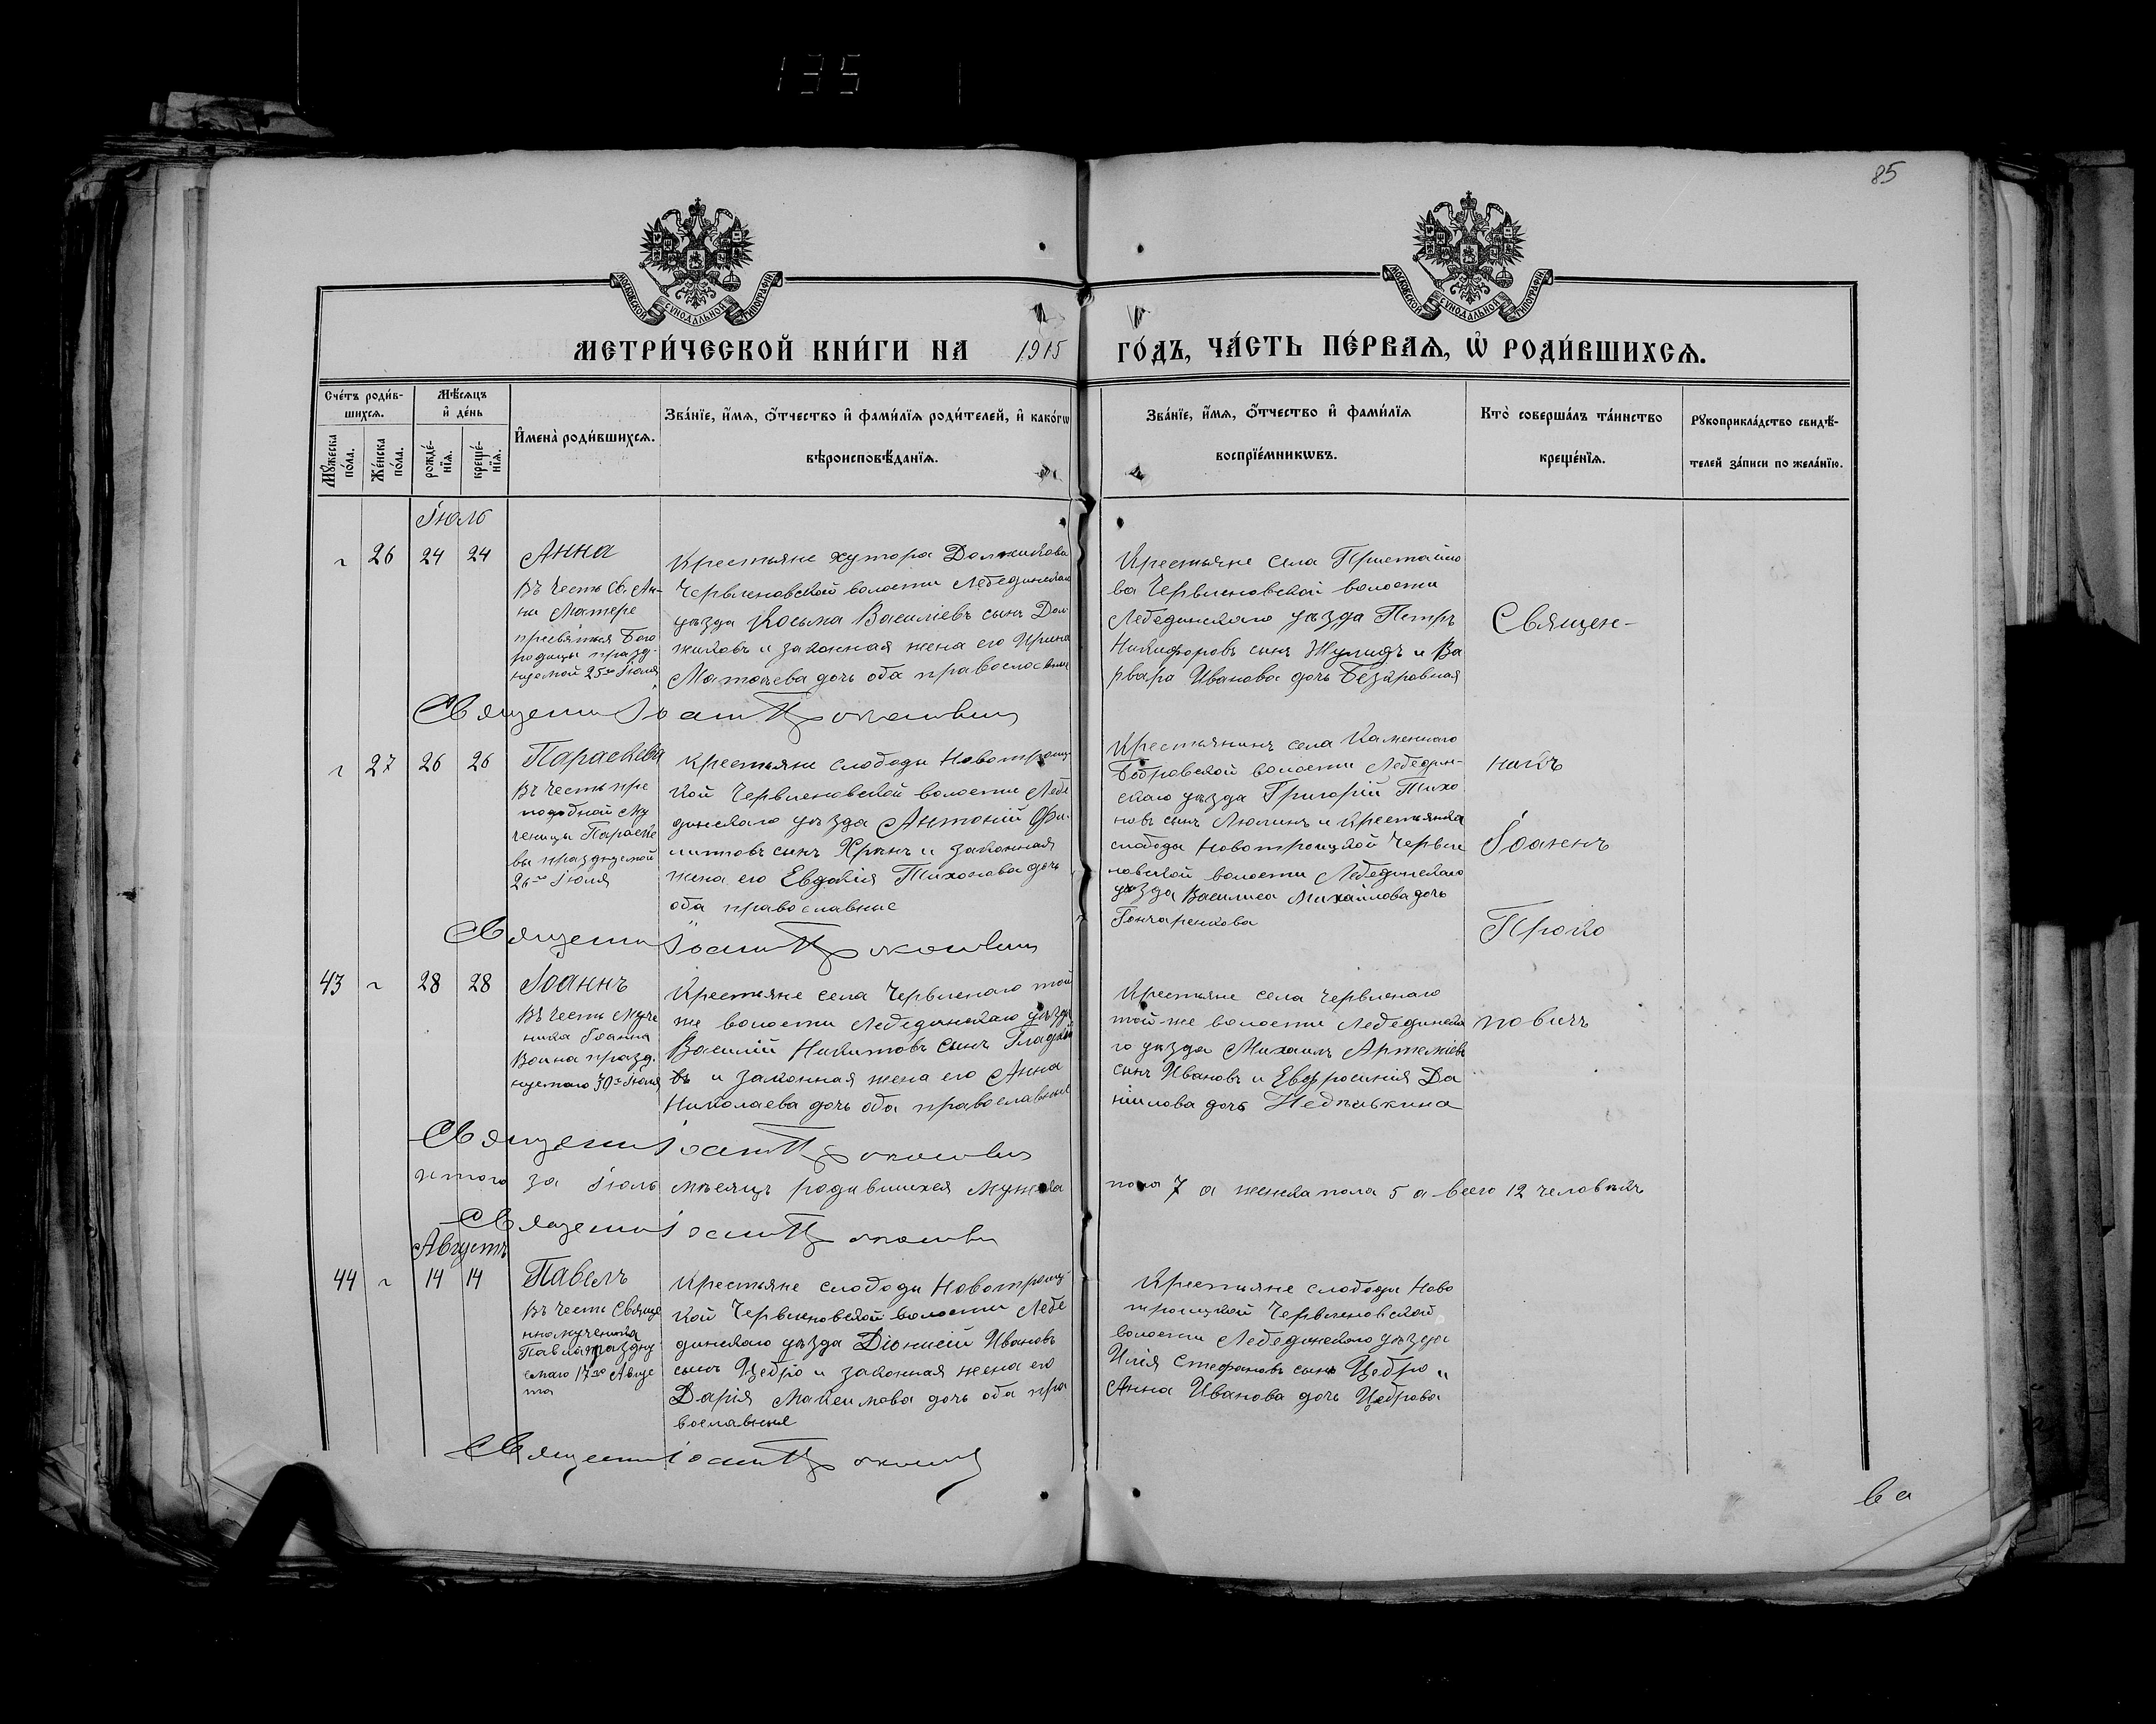 135
85
МОСКОВСКОЙ СУНОДАЛЬНОЙ ТИПОГРАФІИ
МОСКОВСКОЙ СУНОДАЛЬНОЙ ТИПОГРАФІИ
МЕТРИ́ЧЕСКОЙ КНИ́ГИ НА 1915 ГО́ДЪ, ЧА́СТЬ ПЕ́РВАѦ, Ѡ҆ РОДИ́ВШИХСѦ.
Сче́тъ роди́в-
шихсѧ.
Мꙋ́жеска по́ла.
Же́нска по́ла.
Мѣ́сѧцъ
и҆ де́нь
рожде́-
нїѧ.
креще́-
нїѧ.
И҆мена̀ роди́вшихсѧ.
Зва́нїе, и҆́мѧ, ѻ҆́тчество и҆ фами́лїѧ роди́телей, и҆ како́гѡ
вѣроисповѣ́данїѧ.
Зва́нїе, и҆́мѧ, ѻ҆́тчество и҆ фами́лїѧ
воспрїе́мникѡвъ.
Кто̀ соверша́лъ та́инство
креще́нїѧ.
Рꙋкоприкла́дство свидѣ́-
телей за́писи по жела́нїю.
Іюль
26 24 24 Анна
Въ честь Св. Ан-
ны Матере
пресвятыя Бого
родицы празд-
нуемой 25го Іюля
Крестьяне хутора Должикова
Червленовской волости Лебединскаго
уѣзда Косьма Василіевъ сынъ Дол-
жиковъ и законная жена его Ирина
Матѳеева дочь оба православные
Крестьяне села Пристайло
ва Червленовской волости
Лебединскаго уѣзда Петръ
Никифоровъ сынъ Жулидъ и Ва
рвара Иванова дочь
Священ-
27 26 26 Параскева
Въ честь пре
подобной му
ченицы Параске
вы празднуемой
26го Іюля
Крестьяне слободы Новотроиц-
кой Червленовской волости Лебе
динскаго уѣзда Антоній Фи-
липповъ сынъ и законная
жена его Евдокія Тихонова дочь
оба православные
Крестьянинъ села Каменнаго
Бобровской волости Лебедин-
скаго уѣзда Григорій Тихо
новъ сынъ и крестьянка
слободы Новотроицкой Червле
новской волости Лебединскаго
уѣзда Василиса Михайлова дочь
Гончаренкова
никъ
Іоаннъ
Проко
43 28 28 Іоаннъ
Въ честь Муче
ника Іоанна
Воина празд-
нуемаго 30го Іюля
Крестьяне села Червленаго той
же волости Лебединскаго уѣзда
Василій Никитовъ сынъ Гладко
въ и законная жена его Анна
Николаева дочь оба православные
Крестьяне села Червленаго
той-же волости Лебединска
го уѣзда Михаилъ Артеміевъ
сынъ Ивановъ и Евфросинія Да
ніилова дочь
повичъ
Итого за Іюль мѣсяцъ родившихся мужска
пола 7 а женска пола 5 а всего 12 человѣкъ
Августъ
44 14 14 Павелъ
Въ честь Свяще
нномученика
Павла праздну
емаго 17го Авгус
та
Крестьяне слободы Новотроиц-
кой Червленовской волости Лебе
динскаго уѣзда Діонисій Ивановъ
сынъ Цебро и законная жена его
Дарія Максимова дочь оба пра
вославные
Крестьяне слободы Ново
троицкой Червленовской
волости Лебединскаго уѣзда
Илія Стефановъ сынъ Цебро и
Анна Иванова дочь Цеброва